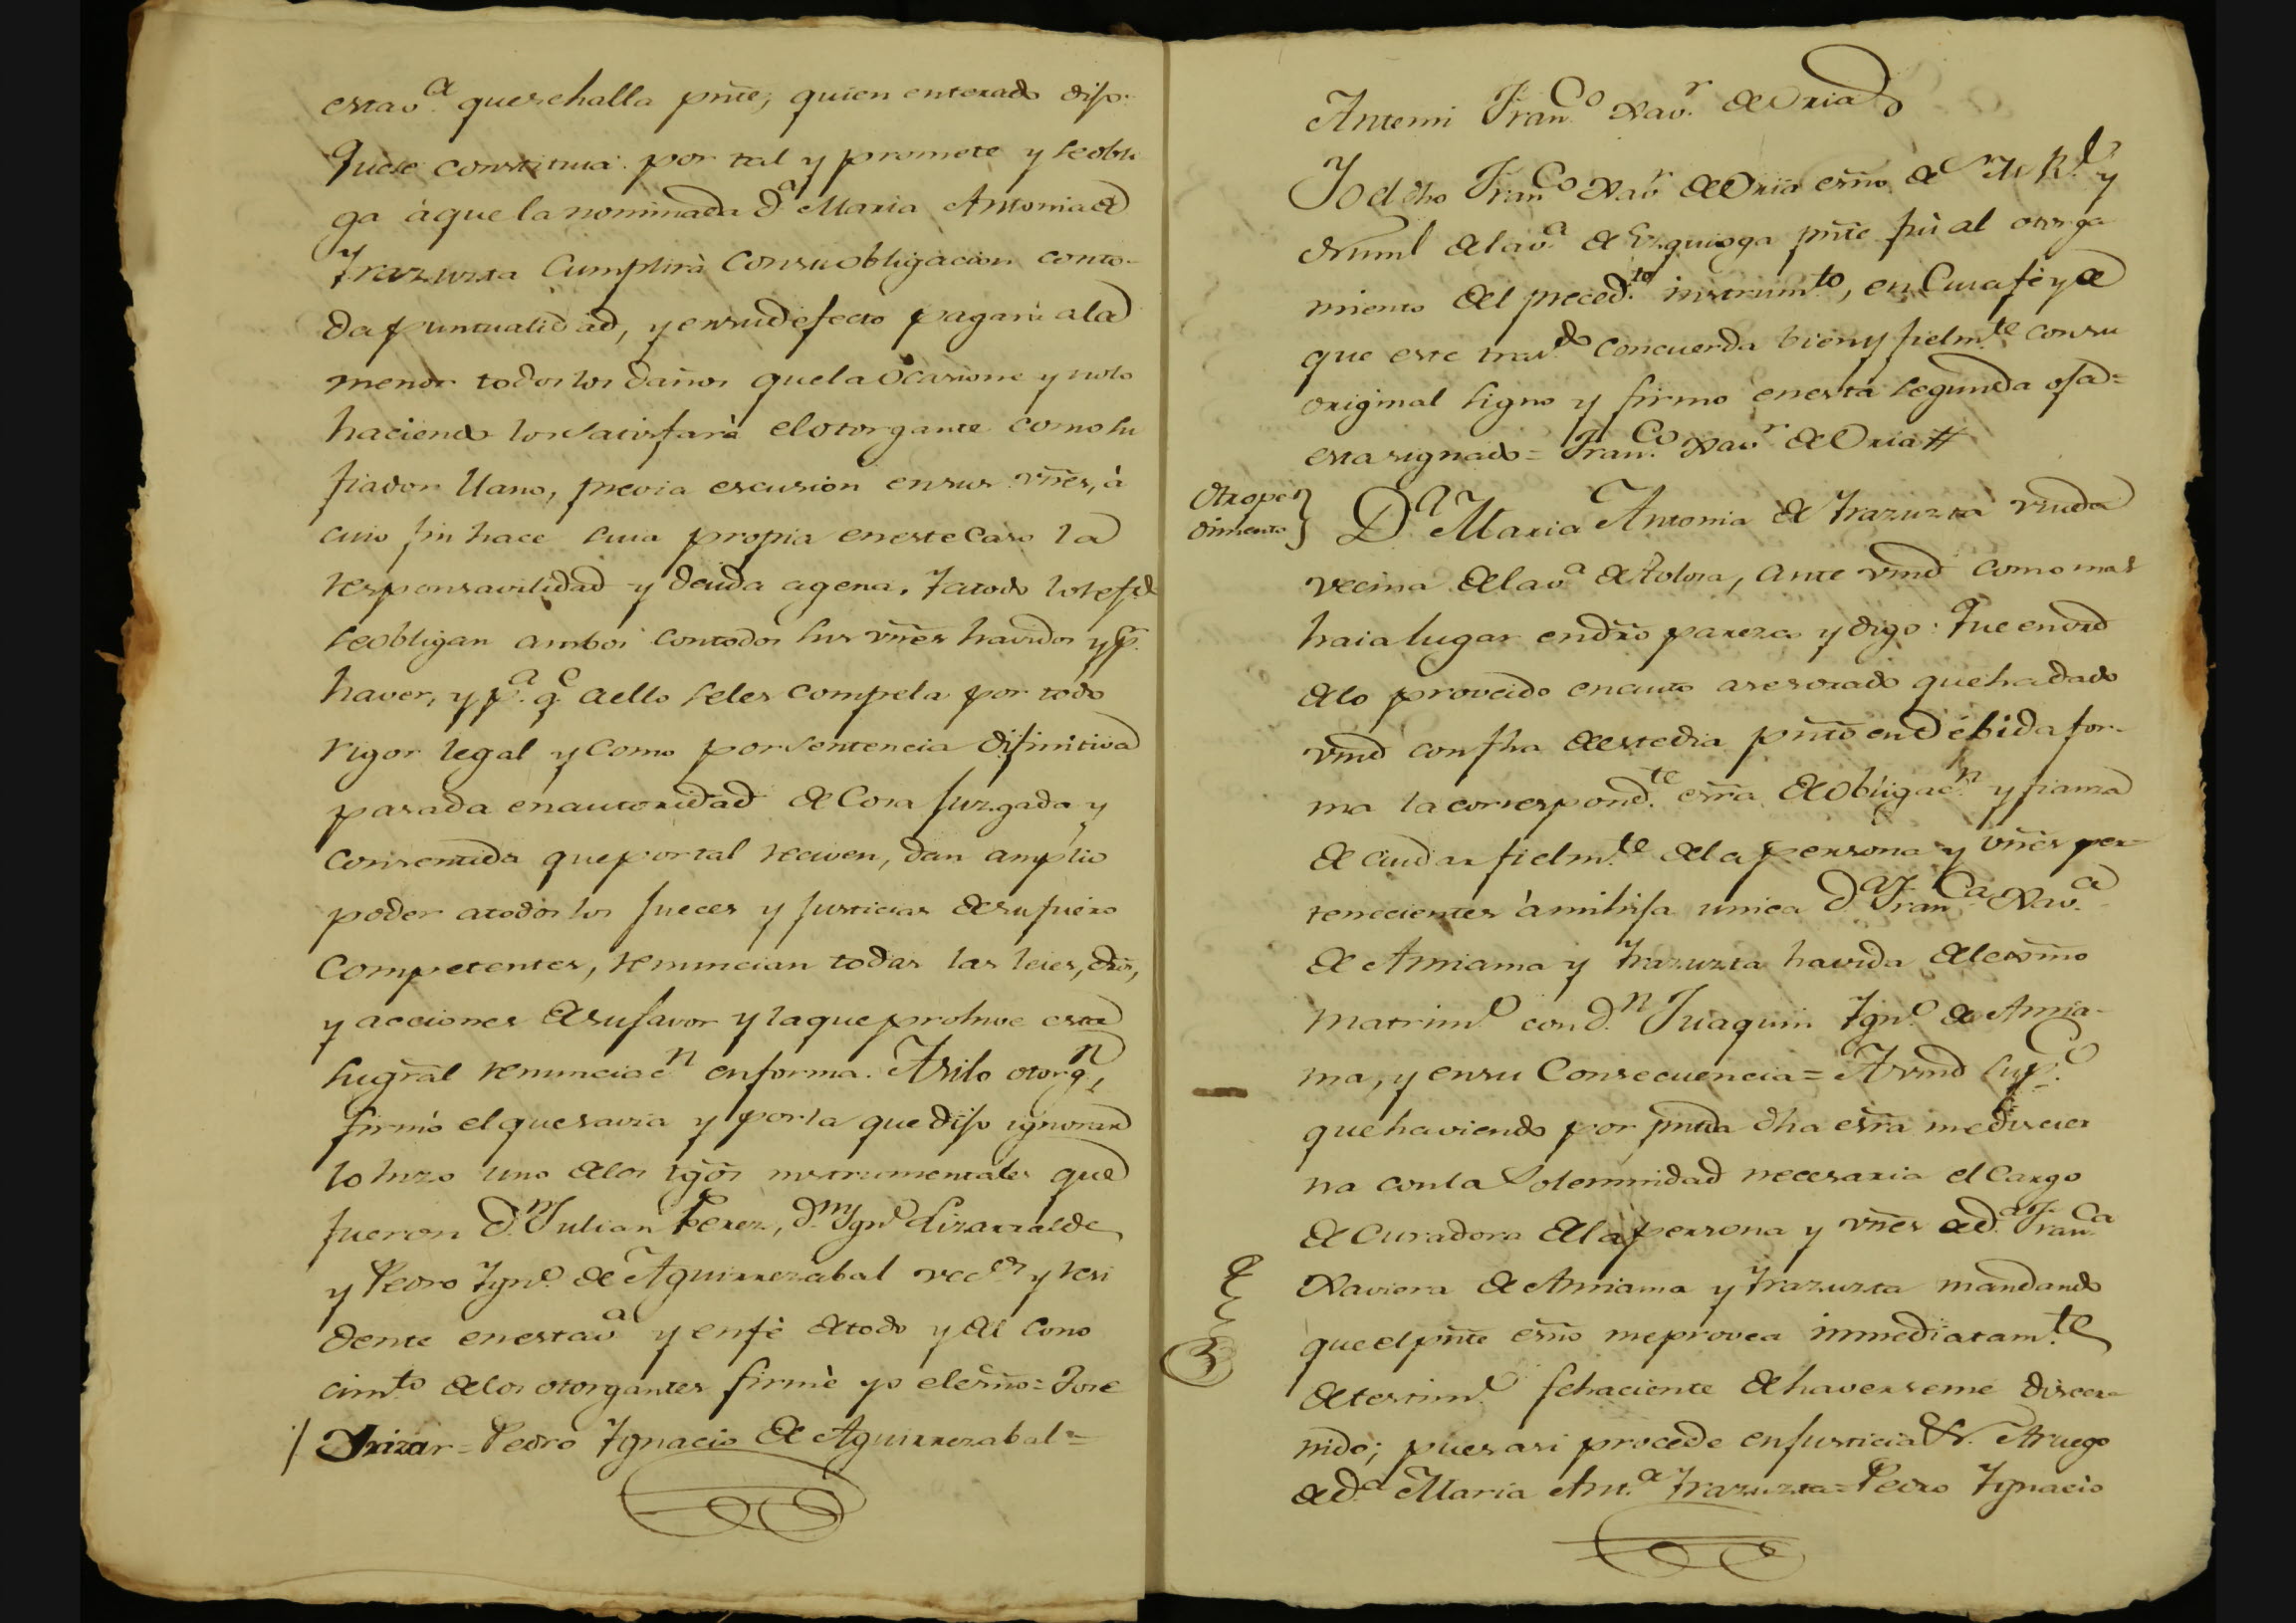 esta v.ª que se halla pñte, quien enterado dijo:
Que se constituia por tal y promete y se obli
ga à que la nominada D.ª Maria Antonia de
Yrazuzta cumplirà con su obligacion con to-
da puntualidad, y en su defecto pagarà a la
menor todos los daños que la ocasione y no lo
haciendo los satisfarà el otorgante como su
fiador llano, previa escusion en sus vñes, à
cuio fin hace suia propia en este caso la
responsavilidad y deuda agena. Y a todo lo refd.
se obligan ambos con todos sus vñes havidos y p.
haver, y p.ª q.e a ello se les compela por todo
rigor legal y como por sentencia difinitiva
pasada en autoridad de cosa juzgada y
consentida que por tal reciven, dan amplio
poder a todos los jueces y justicias de su fuero
competentes, renuncian todas las leies, dr̃os,
y acciones de su favor y la que prohive esta
la gral renunciac.n en forma. Asi lo otorg.n,
firmò el que savia y por la que dijo ignorar
lo hizo uno de los tgõs instrumentales que
fueron D.n Julian Perez, D.n Ygn.o Lizarralde
y Pedro Ygn.o de Aguirrezabal vec.os y resi
dente en esta v.ª y en fè de todo y del cono
cim.to de los otorgantes firmè yo el esñno = Jose
Yrizar = Pedro Ygnacio de Aguirrezabal =
Antemi Fran.co Xav.r de Oria
Yo el dho Fran.co Xav.r de Oria esñno de S. M. R.l y
Numl de la v.ª de Ezquioga pñte fuì al otorga
miento del preced.te instrum.to, en cuia fè y de
que este tras.do concuerda bien y fielm.te con su
original signo y firmo en esta segunda oja =
esta signado = Fran.co Xav.r de Oria #
Otro pe
dimento } D.ª Maria Antonia de Yrazuzta viuda
vecina de la v.ª de Tolosa, ante vmd como mas
haia lugar en dr̃o parezco y digo: Que en vrd
de lo proveido en auto asesorado que ha dado
vmd con fha de este dia pñto en débida for-
ma la correspond.te esr̃a de obligac.n y fianza
de cuidar fielm.te de la persona y vñes per-
tenecientes à mi hija unica D.ª Fran.ca Xav.ª
de Amiama y Yrazuzta havida de lexmo
matrim.o con d.n Juaquin Ygn.o de Amia-
ma, y en su consecuencia = A vmd sup.co
que haviendo por pntda dha esr̃a me discier
na con la solemnidad necesaria el cargo
de curadora de la persona y vñes de d.ª Fran.ca
Xaviera de Amiama y Yrazuzta mandando
que el pñte esñno me provea immediatam.te
de testim.o fehaciente de haverseme discer-
nido; pues asi procede en justicia &.ª A ruego
de d.ª Maria Ant.ª Yrazuzta = Pedro Ygnacio